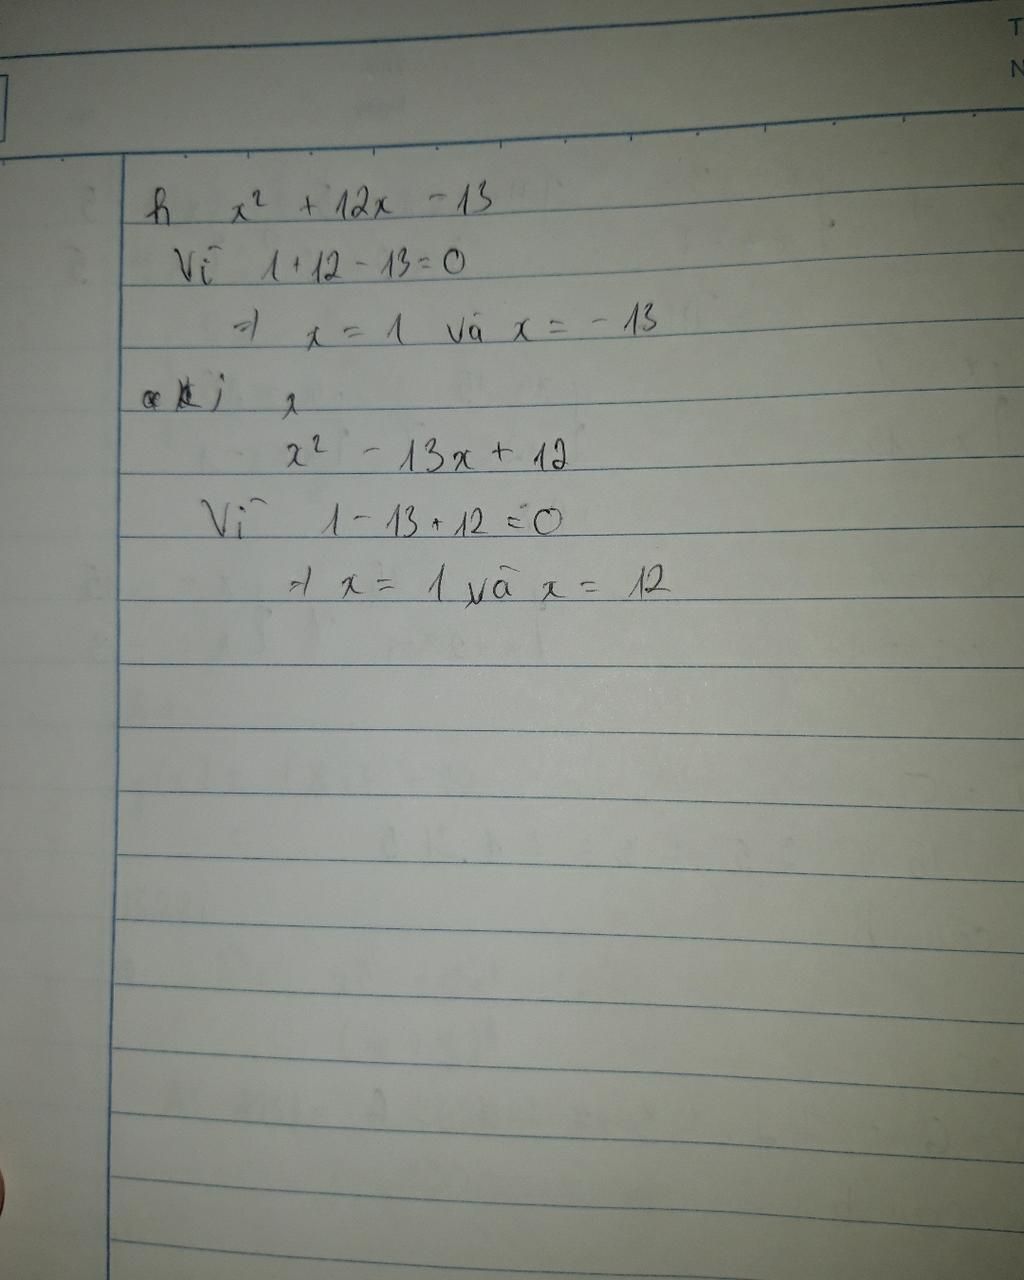 h x² + 12x - 13
Vì 1 + 12 - 13 = 0
=> x = 1 và x = - 13
i x
x² - 13x + 12
Vì 1 - 13 + 12 = 0
=> x = 1 và x = 12